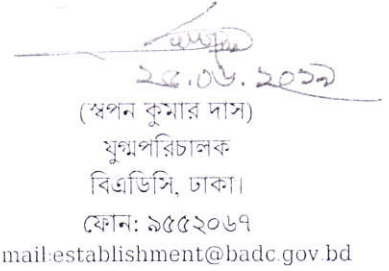 ২৫.০৬.২০১৯
(স্বপন কুমার দাস)
যুগ্মপরিচালক
বিএডিসি, ঢাকা।
ফোন: ৯৫৫২০৬৭
mail:establishment@badc.gov.bd